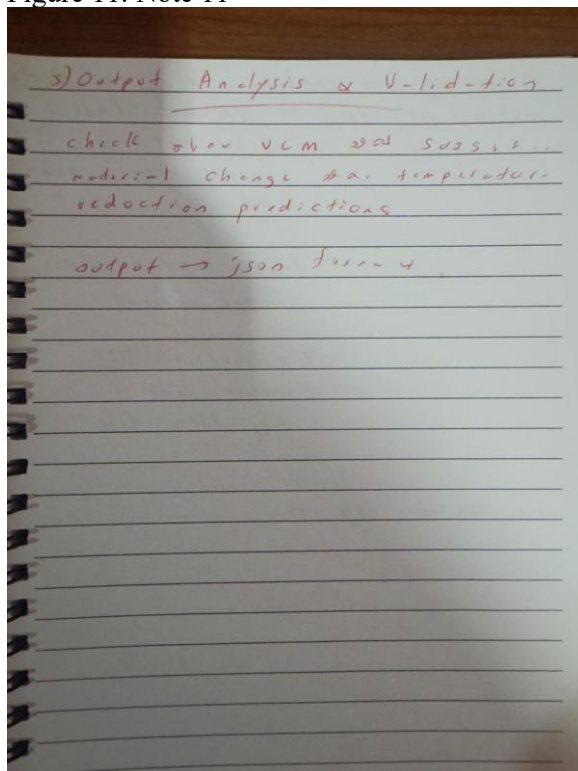 Figure 11: Note 11
5) Output Analysis & Validation
check VLM
material change temperature
reduction predictions
output → json format